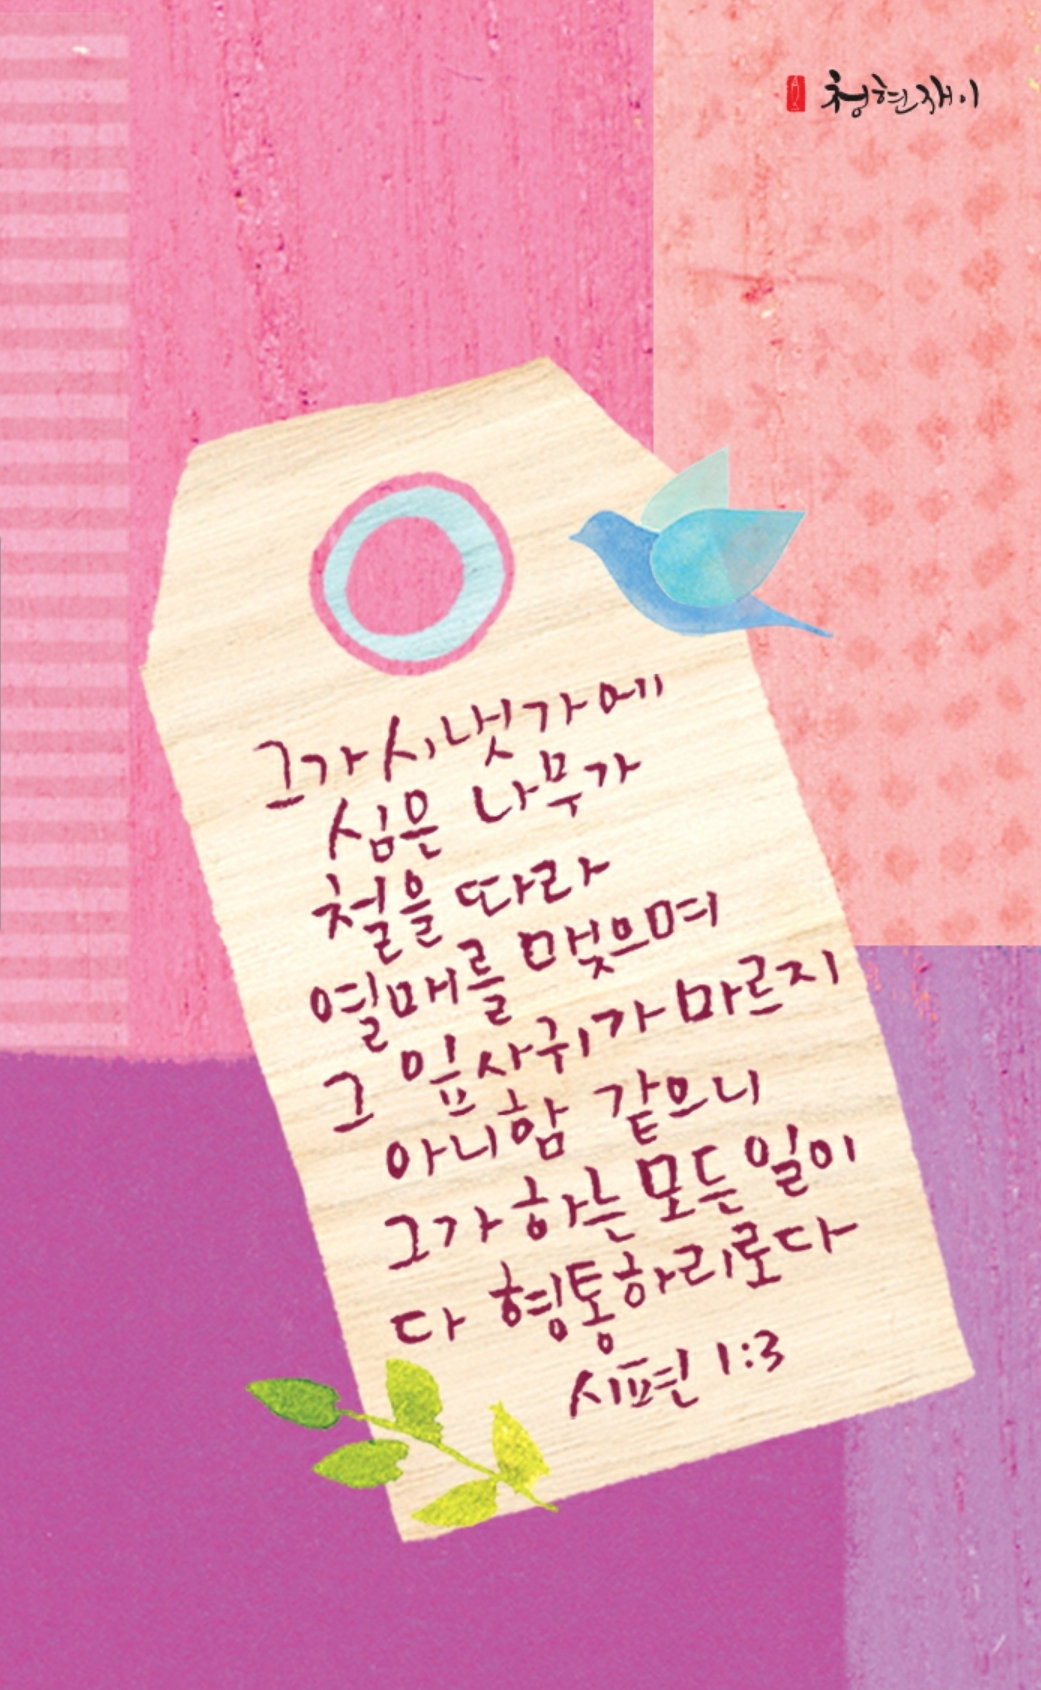 청현재이
그가 시냇가에
심은 나무가
철을 따라
열매를 맺으며
그 잎사귀가 마르지
아니함 같으니
그가 하는 모든 일이
다 형통하리로다
시편 1:3